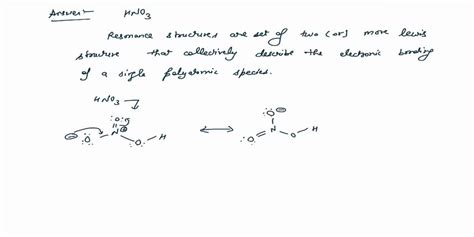 Answer:- HNO3
Resonance structures are set of two (or) more lewis
structure that collectively describe the electronic bonding
of a single polyatomic species.
HNO3
:O:
⊖ :O N⊕ O H ⟷ O N O H
:O: ⊖